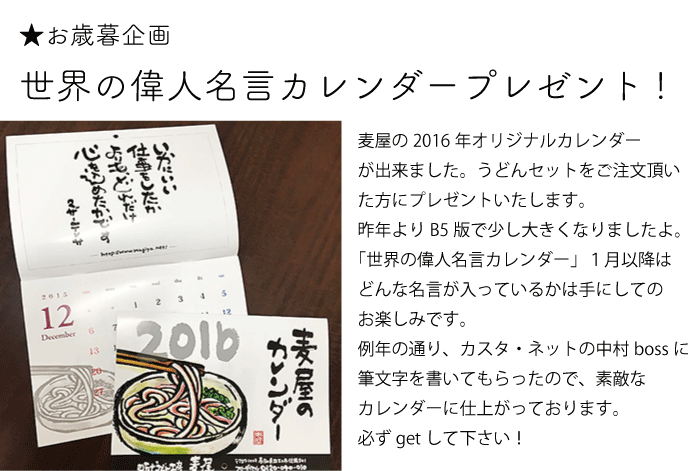 ★お歳暮企画
世界の偉人名言カレンダープレゼント！
麦屋の 2016 年オリジナルカレンダー
が出来ました。うどんセットをご注文頂い
た方にプレゼントいたします。
昨年より B5 版で少し大きくなりましたよ。
「世界の偉人名言カレンダー」１月以降は
どんな名言が入っているかは手にしての
お楽しみです。
例年の通り、カスタ・ネットの中村 boss に
筆文字を書いてもらったので、素敵な
カレンダーに仕上がっております。
必ず get して下さい！
いかにいい
仕事をしたか
よりもどれだけ
心を込めたかです
マザーテレサ
http://www.mugiya.net/
2015
12
December
2016
麦屋の
カレンダー
麦屋